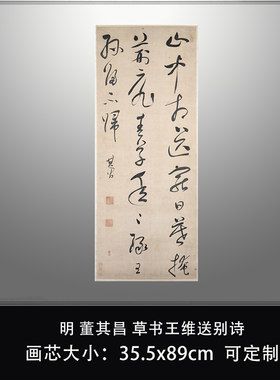 山中相送罷日暮掩
扉春草年〻綠王
孫歸不歸 其昌
明 董其昌 草书王维送别诗
画芯大小：35.5x89cm 可定制